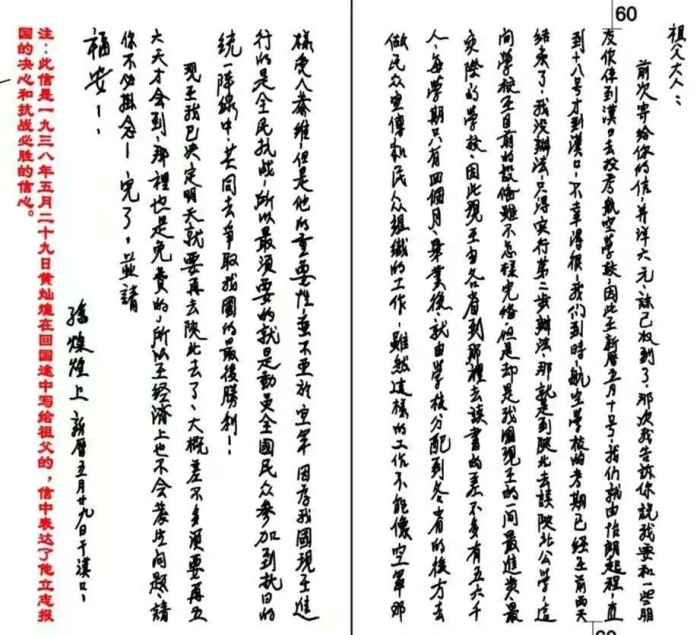 60
祖父大人：
前次寄给你的信，并洋六元，该已收到了，那次我告诉你说我要和一些朋
友你伴到漢口去投考航空学校，因此在新曆五月十号，我们就由怡朗起程，直
到十八号才到漢口，不幸得很，我们到时，航空学校的考期已经在前两天
结束了，我没辦法，只得实行第二步辦法，那就是到陝北去读陝北公学，这
间学校在目前的設俻雖不怎樣完俻，但是却是我國現在的一间最進步、最
实際的学校，因此現在由各省到那裡去读書的差不多有五六千
人，每学期只有四個月，畢業後，就由学校分配到各省的後方去
做民众宣傳和民众组織的工作，雖然这樣的工作不能像空軍那
樣受人奉維，但是他的重要性並不亜於空軍，因為我國現在進
行的是全民抗战，所以最須要的就是動員全國民众参加到抗日的
统一陣綫中，共同去争取我國的最後勝利！
現在我已决定明天就要再去陝北去了，大概差不多须要再五
六天才会到，那裡也是免費的，所以在经濟上也不会發生问题，請
你不必掛念！完了，並請
福安！
孫燦煌上 新曆五月廿九日于漢口
注：此信是一九三八年五月二十九日黄灿煌在回国途中写给祖父的，信中表达了他立志报
国的决心和抗战必胜的信心。